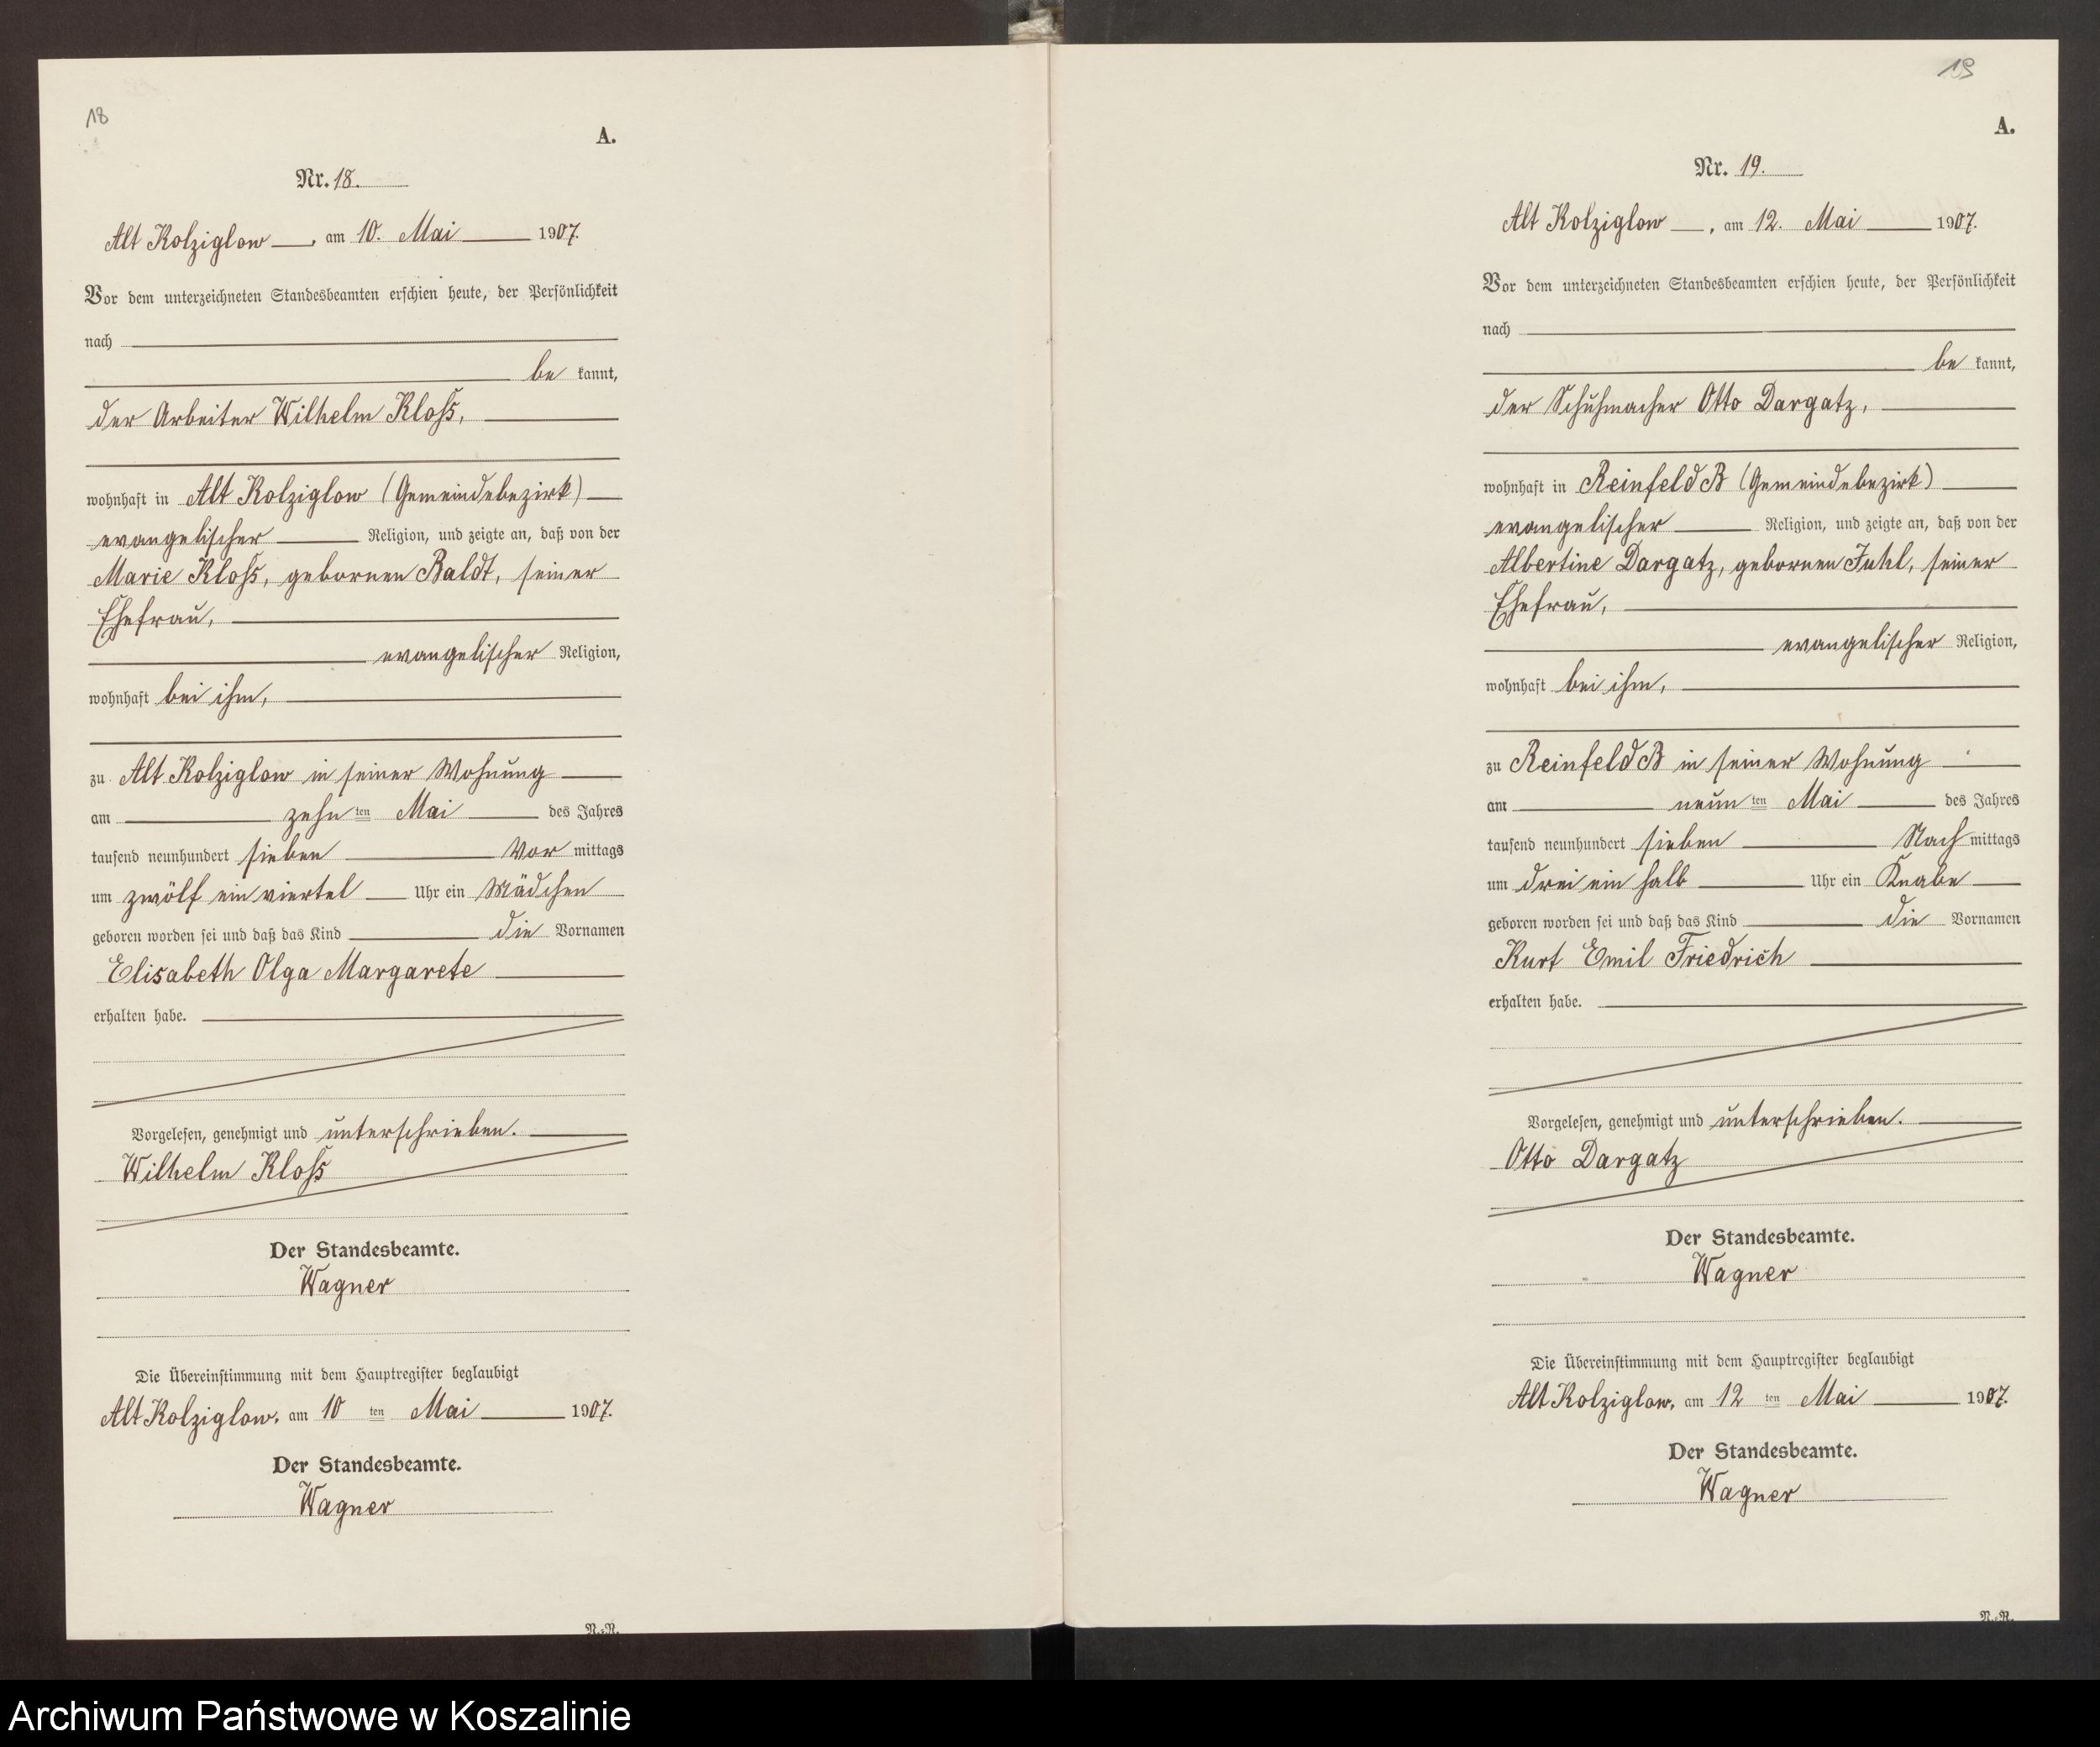 18
A.
Nr. 18.
Alt Kolziglow, am 10. Mai 1907.
Vor dem unterzeichneten Standesbeamten erschien heute, der Persönlichkeit
nach
be kannt,
der Arbeiter Wilhelm Kloß,
wohnhaft in Alt Kolziglow (Gemeindebezirk)
evangelischer Religion, und zeigte an, daß von der
Marie Kloß, gebornen Baldt, seiner
Ehefrau,
evangelischer Religion,
wohnhaft bei ihm,
zu Alt Kolziglow in seiner Wohnung
am zehn ten Mai des Jahres
tausend neunhundert sieben Vor mittags
um zwölf ein viertel Uhr ein Mädchen
geboren worden sei und daß das Kind die Vornamen
Elisabeth Olga Margarete
erhalten habe.
Vorgelesen, genehmigt und unterschrieben.
Wilhelm Kloß
Der Standesbeamte.
Wagner
Die Übereinstimmung mit dem Hauptregister beglaubigt
Alt Kolziglow, am 10 ten Mai 1907.
Der Standesbeamte.
Wagner
N.=R.
19
A.
Nr. 19.
Alt Kolziglow, am 12. Mai 1907.
Vor dem unterzeichneten Standesbeamten erschien heute, der Persönlichkeit
nach
be kannt,
der Schuhmacher Otto Dargatz,
wohnhaft in Reinfeld B (Gemeindebezirk)
evangelischer Religion, und zeigte an, daß von der
Albertine Dargatz, gebornen Juhl, seiner
Ehefrau,
evangelischer Religion,
wohnhaft bei ihm,
zu Reinfeld B in seiner Wohnung
am neun ten Mai des Jahres
tausend neunhundert sieben Nach mittags
um drei ein halb Uhr ein Knabe
geboren worden sei und daß das Kind die Vornamen
Kurt Emil Friedrich
erhalten habe.
Vorgelesen, genehmigt und unterschrieben.
Otto Dargatz
Der Standesbeamte.
Wagner
Die Übereinstimmung mit dem Hauptregister beglaubigt
Alt Kolziglow, am 12 ten Mai 1907.
Der Standesbeamte.
Wagner
N.=R.
Archiwum Państwowe w Koszalinie